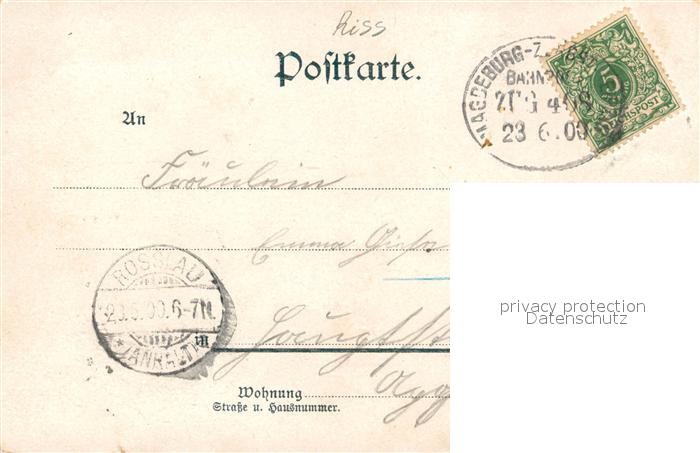 Riss
Postkarte.
MAGDEBURG-Z
BAHNPO
ZUG 4
23 6.00
5
REICHSPOST
An
Fräulein
Emma
ROSSLAU
6-7N.
*(ANHALT)*
in
Wohnung
Straße u. Hausnummer.
privacy protection
Datenschutz